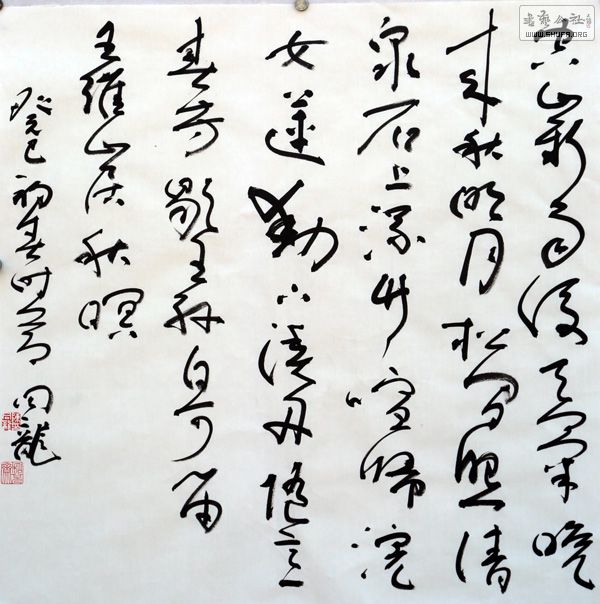 書藝公社
WWW.SHUFA.ORG
空山新雨後天氣晚
來秋明月松間照清
泉石上流竹喧歸浣
女蓮動下漁舟隨意
春芳歇王孫自可留
王維山居秋暝
癸巳初春時節 龍